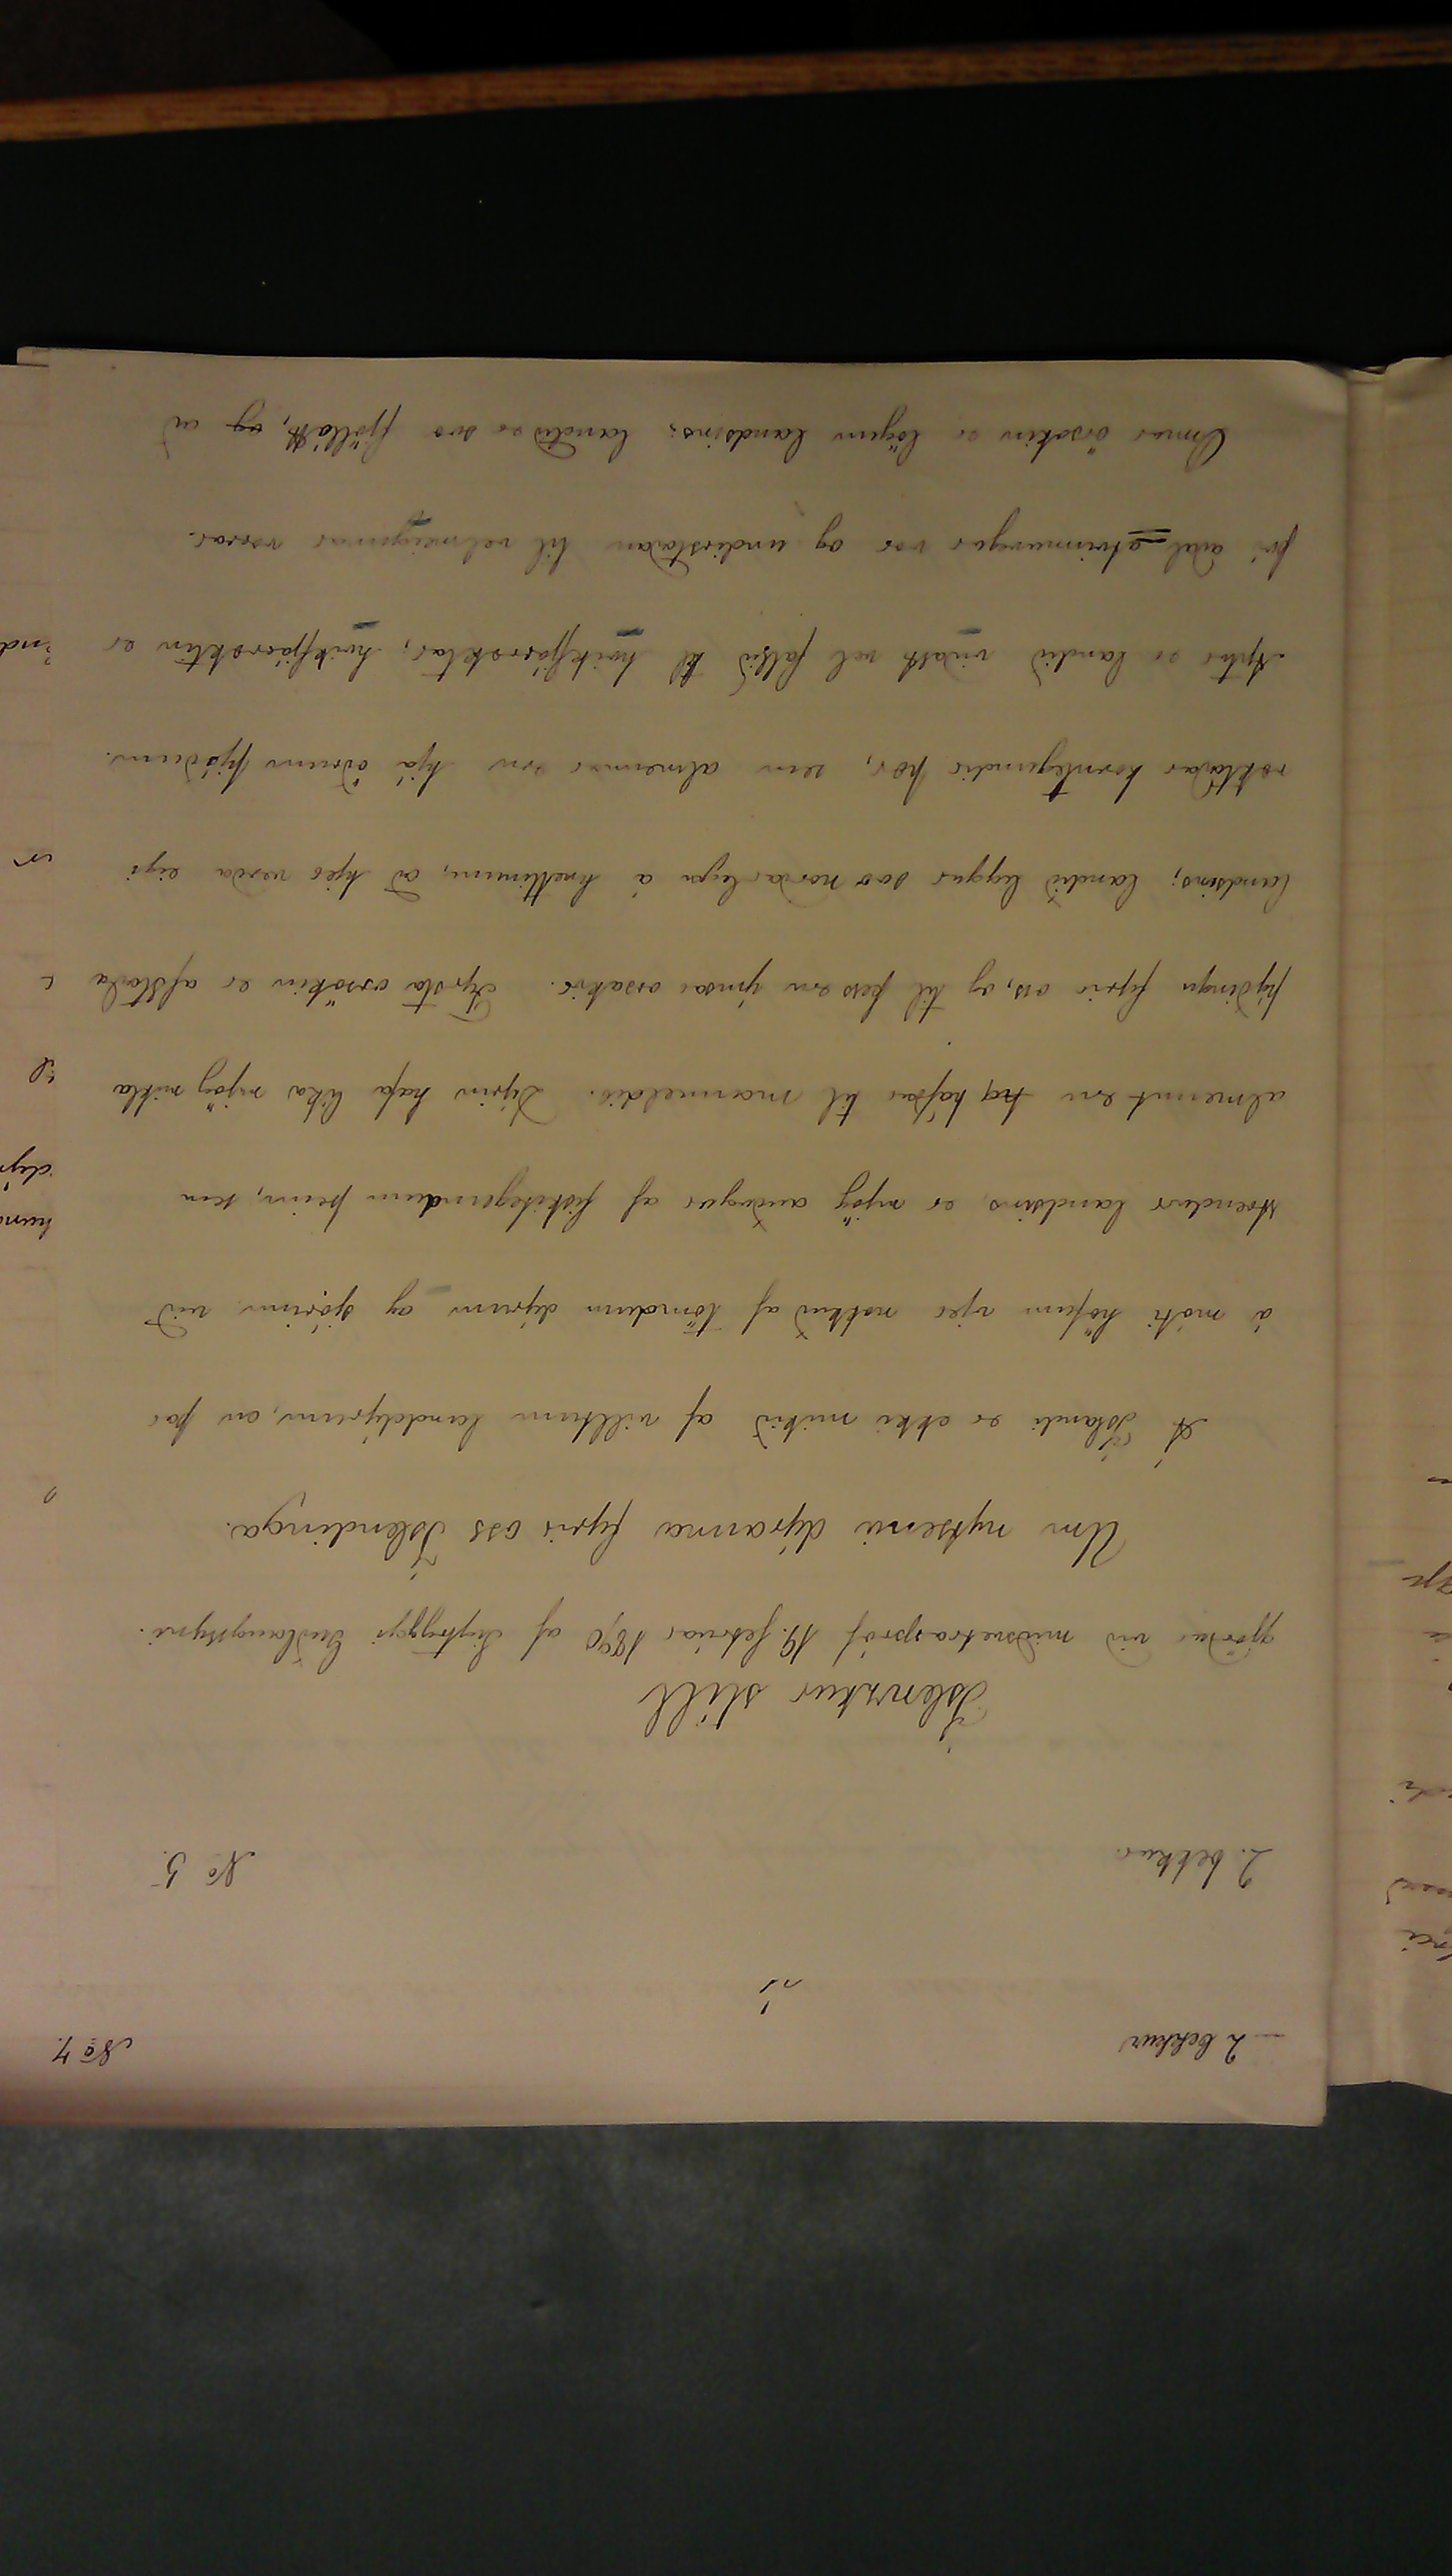 2 bekkur
No 4.
2. bekkur.
No 5.
Íslenzkur stíll
gjörður við miðsvetrarpróf 19. febrúar 1890 af Sigtryggi Guðlaugssyni.
Um nytsemi dýranna fyrir oss Íslendinga.
Á Íslandi er ekki mikið af villtum landdýrum, en þar
á móti höfum vjer nokkuð af tömdum dýrum og sjórinn við
strendur landsins er mjög auðugur af fiskitegundum þeim, sem
almennt eru hafðar til manneldis. Dýrin hafa líka mjög mikla
þýðingu fyrir oss, og til þess eru ýmsar orsakir. Fyrsta orsökin er afstaða
landsins; landið liggur svo norðarlega á hnettinum, að hjer verða eigi
ræktaðar korntegundir þær, sem almennar eru hjá öðrum þjóðum.
Aptur er landið víðast vel fallið til kvikfjárræktar, kvikfjárræktin er
því aðal-atvinnuvegur vor og undirstaðan til velmeigunar vorrar.
Önnur orsökin er lögun landsins; landið er svo fjöllótt, og að